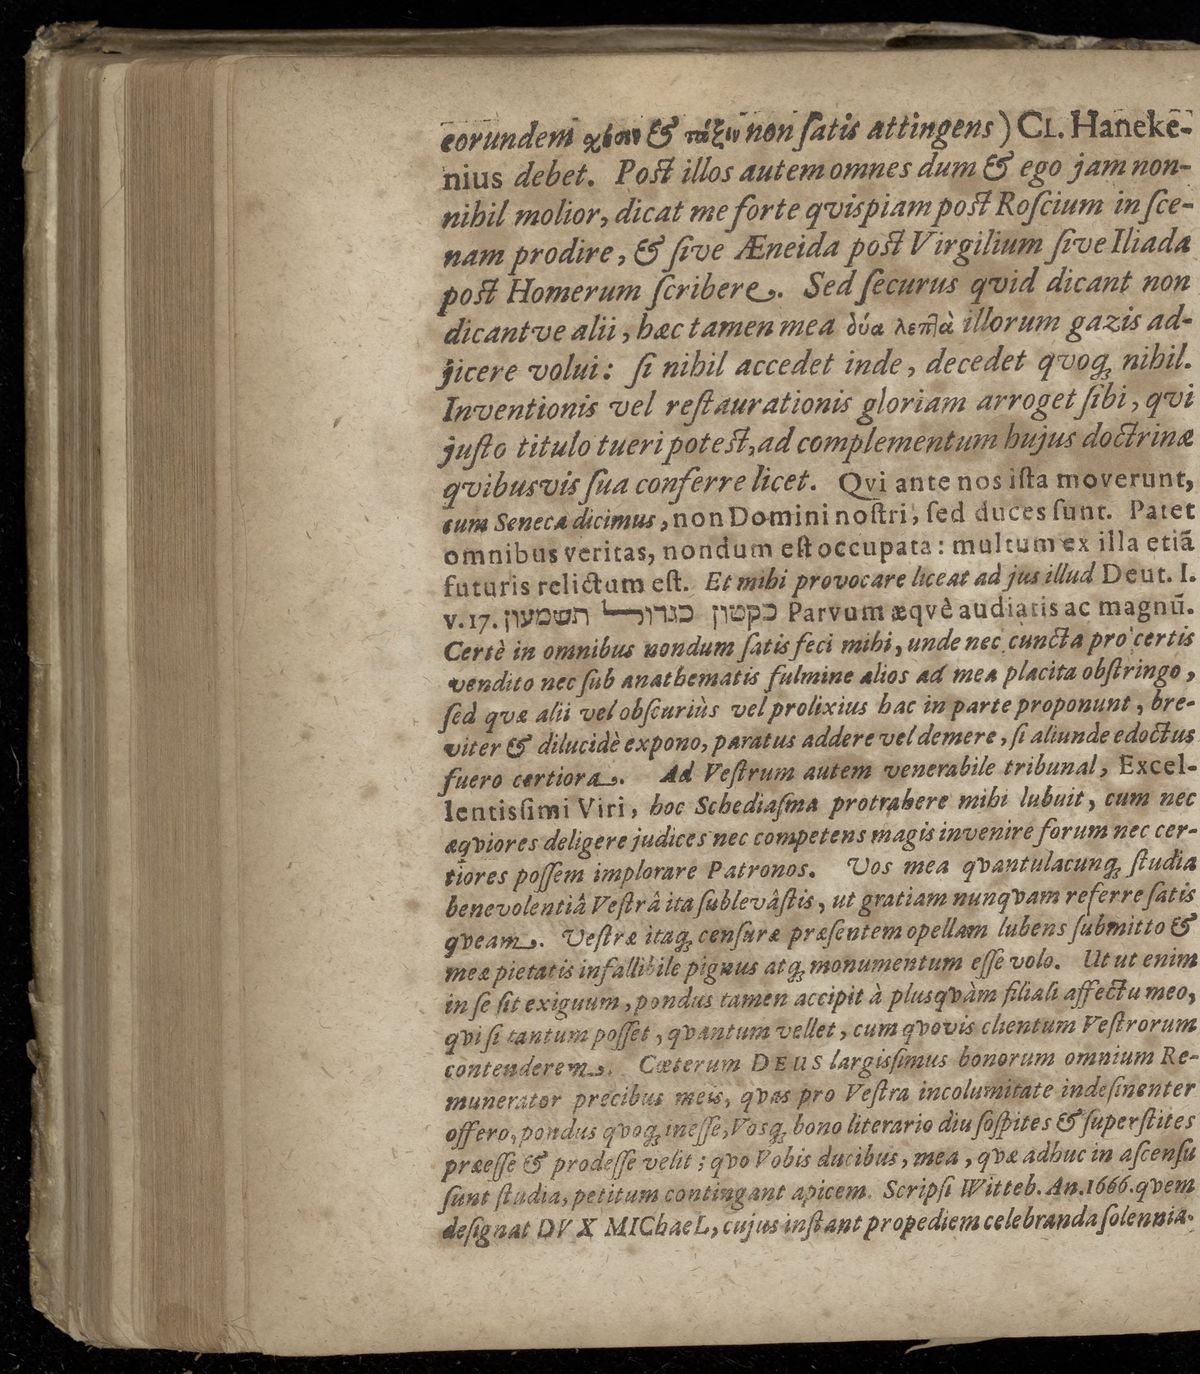 eorundem χέσιν & τάξιν non ſatis attingens) Cl. Haneke-
nius debet. Poſt illos autem omnes dum & ego jam non-
nihil molior, dicat me forte qviſpiam poſt Roſcium in ſce-
nam prodire, & ſive Æneida poſt Virgilium ſive Iliada
poſt Homerum ſcribere. Sed ſecurus qvid dicant non
dicantve alii, hæc tamen mea δύα λεπτὰ illorum gazis ad-
jicere volui: ſi nihil accedet inde, decedet qvoq; nihil.
Inventionis vel reſtaurationis gloriam arroget ſibi, qvi
juſto titulo tueri poteſt, ad complementum hujus doctrinæ
qvibusvis ſua conferre licet. Qvi ante nos iſta moverunt,
cum Seneca dicimus, non Domini noſtri, ſed duces ſunt. Patet
omnibus veritas, nondum eſt occupata: multum ex illa etiã
futuris relictum eſt. Et mihi provocare liceat ad jus illud Deut. I.
v. 17. כקטון כגדול תשמעון Parvum æqvè audiatis ac magnũ.
Certè in omnibus nondum ſatis feci mihi, unde nec cuncta pro certis
vendito nec ſub anathematis fulmine alios ad mea placita obſtringo,
ſed qvæ alii vel obſcuriùs vel prolixius hac in parte proponunt, bre-
viter & dilucidè expono, paratus addere vel demere, ſi aliunde edoctus
fuero certiora. Ad Veſtrum autem venerabile tribunal, Excel-
lentiſſimi Viri, hoc Schediaſma protrahere mihi lubuit, cum nec
æqviores deligere judices nec competens magis invenire forum nec cer-
tiores poſſem implorare Patronos. Vos mea qvantulacunq; ſtudia
benevolentiâ Veſtrâ ita ſublevâſtis, ut gratiam nunqvam referre ſatis
qveam. Veſtræ itaq; cenſuræ præſentem opellam lubens ſubmitto &
meæ pietatis infallibile pignus atq; monumentum eſſe volo. Ut ut enim
in ſe ſit exiguum, pondus tamen accipit à plusqvàm filiali affectu meo,
qvi ſi tantum poſſet, qvantum vellet, cum qvovis clientum Veſtrorum
contenderem. Cæterum DEUS largiſſimus bonorum omnium Re-
munerator precibus meis, qvas pro Veſtra incolumitate indeſinenter
offero, pondus qvoq; ineſſe, Vosq; bono literario diu ſoſpites & ſuperſtites
præeſſe & prodeſſe velit; qvo Vobis ducibus, mea, qvæ adhuc in aſcenſu
ſunt ſtudia, petitum contingant apicem. Scripſi Witteb. An. 1666. qvem
deſignat DVX MIChaeL, cujus inſtant propediem celebranda ſolennia.